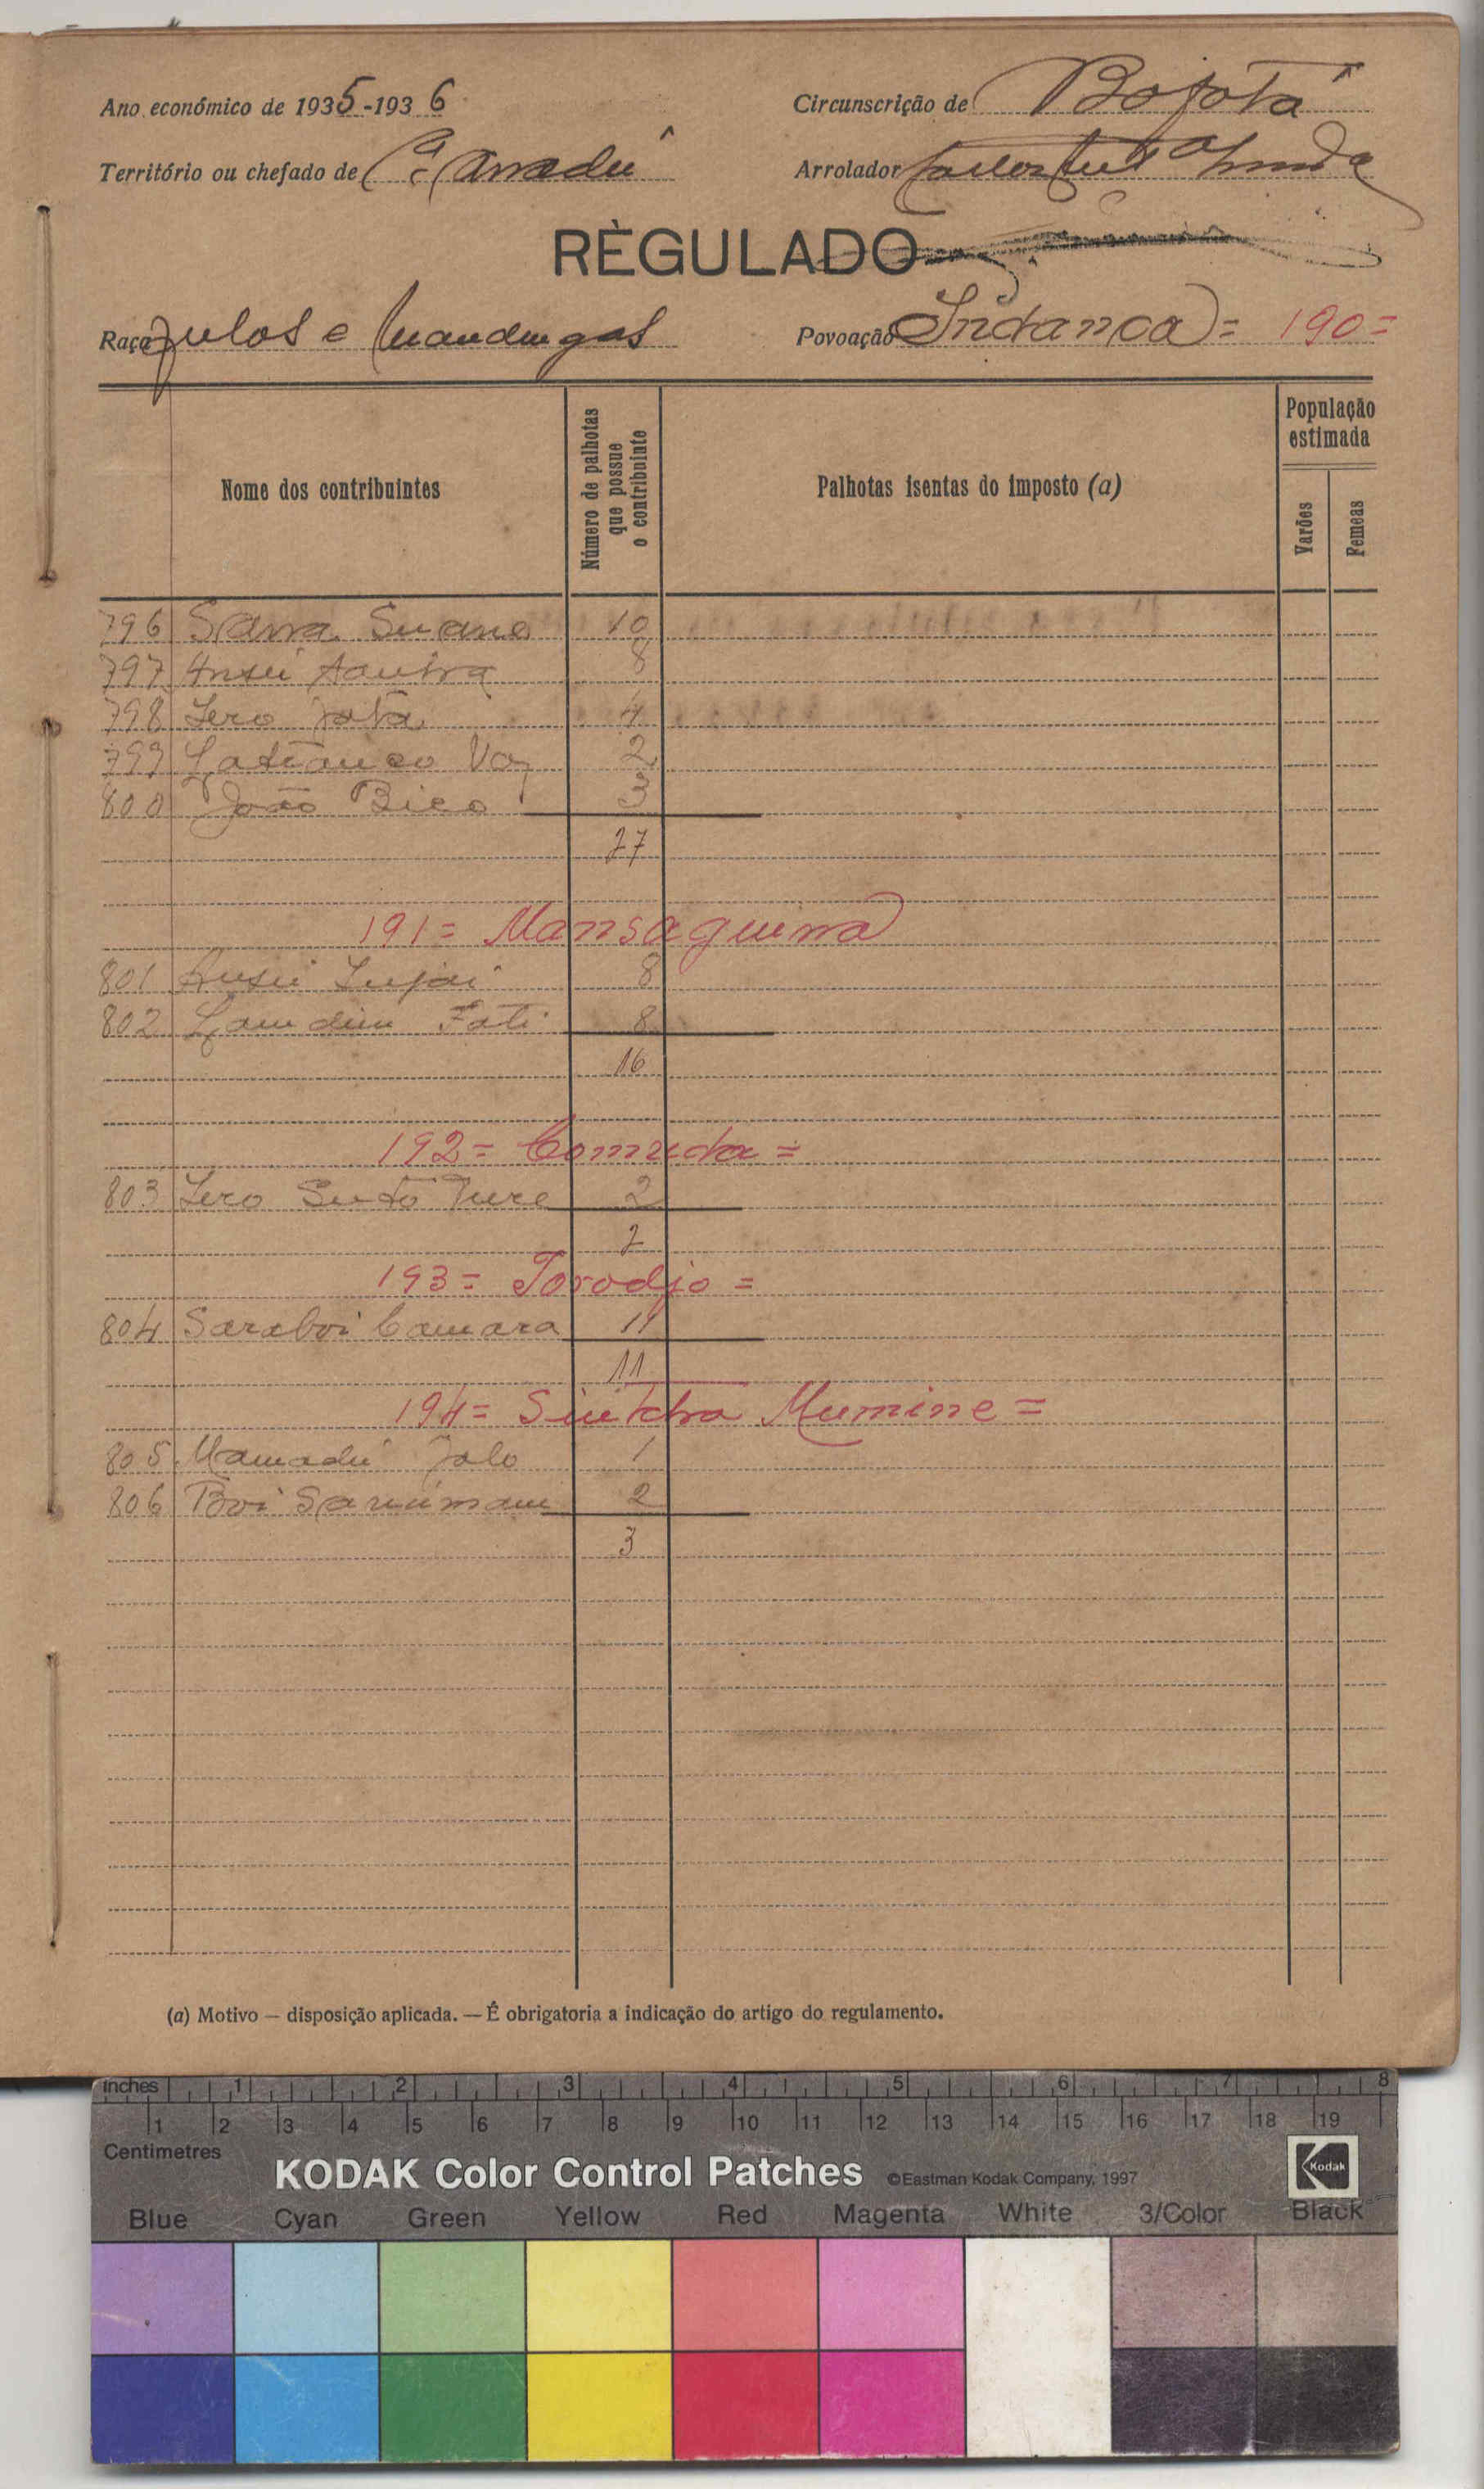 Ano económico de 1935-1936
Circunscrição de Bafatá
Território ou chefado de Canadú
Arrolador
RÈGULADO
Raça Fulos e Mandingas
Povoação Sintanca = 190 =
Nome dos contribuintes
Número de palhotas que possue o contribuinte
Palhotas isentas do imposto (a)
População estimada
Varões
Femeas
796 Sarra Suane 10
797 8
798 Sero 4
799 Vaz 2
800 João Bico 3
27
191 = Mansaguima
801 8
802 Lamdim Fati 8
16
192 =
803 Sero Ture 2
2
193 = Torodjo =
804 Saraboi Camara 11
11
194 = Mumine =
805 Mamadú Jalo 1
806 Boi 2
3
(a) Motivo — disposição aplicada. — É obrigatoria a indicação do artigo do regulamento.
inches 1 2 3 4 5 6 7 8
1 2 3 4 5 6 7 8 9 10 11 12 13 14 15 16 17 18 19
Centimetres
KODAK Color Control Patches ©Eastman Kodak Company, 1997 Kodak
Blue Cyan Green Yellow Red Magenta White 3/Color Black